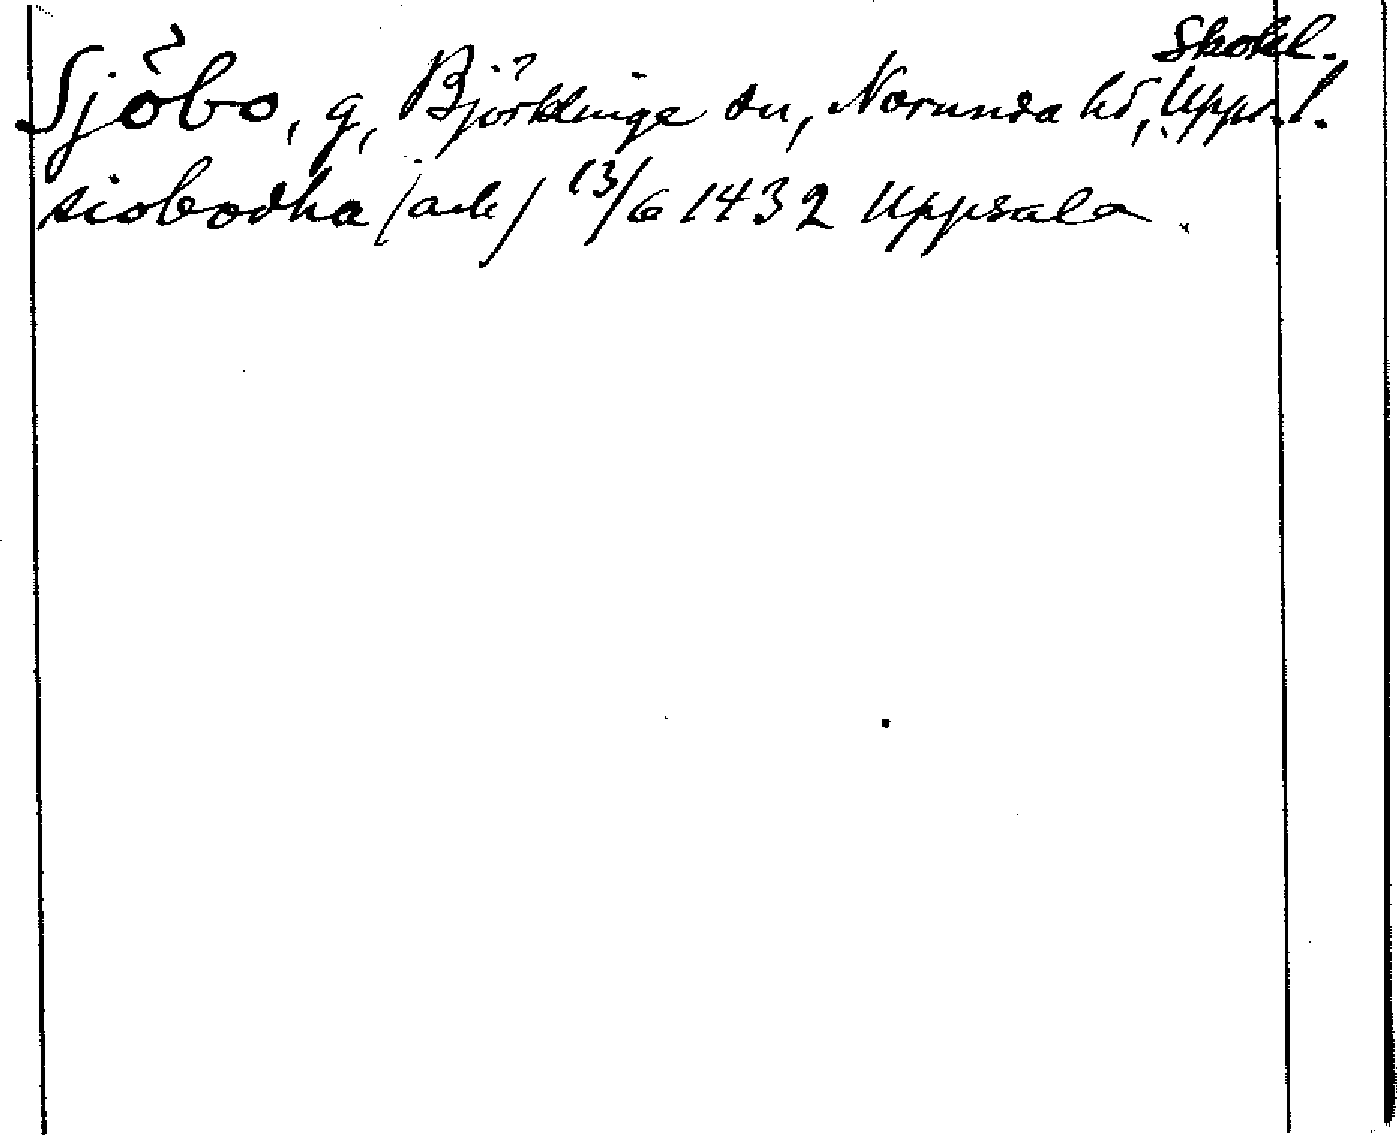 Skokl.
Sjöbo, g, Björklinge sn, Norunda hd, Upps. l.
siobodha (ack) 13/6 1432 Uppsala.